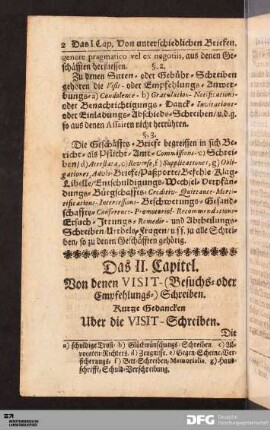 2 Das I. Cap. Von unterschiedlichen Briefen.
genere pragmatico vel ex negotiis, aus denen Ge-
schäfften herfliessen.
§. 2.
Zu denen Sitten- oder Gebühr-Schreiben
gehören die Visit- oder Empfehlungs- Anwer-
bungs- a) Condolence- b) Gratulation- Notifications-
oder Benachrichtigungs- Danck- Invitations-
oder Einladungs- Abschieds-Schreiben / u. d. g.
so aus denen Affairen nicht herrühren.
§. 3.
Die Geschäffts-Briefe begreiffen in sich Be-
richt- als Pflicht- Amt- Commissions- c) Schrei-
ben / d) Attestata, e) Reverse, f) Supplicationes, g) Obli-
gationes, Advis-Briefe / Passporte / Befehl- Klag-
Libelle / Entschuldigungs- Wechsel- Verpfän-
dungs- Bürgschaffts- Credits- Quittance- Mor-
tifications- Intercessions- Beschwerungs- Gesand-
schafft- Conference- Promotorial- Recommendation-
Ersuch- Irrungs- Remedir- und Abtheilungs-
Schreiben / Urtheln / Fragen / u. s. f. ja alle Schrei-
ben / so zu denen Geschäfften gehörig.
Das II. Capitel.
Von denen VISIT- (Besuchs- oder
Empfehlungs-) Schreiben.
Kurtze Gedancken
Uber die VISIT-Schreiben.
Die
a) schuldige Trost- b) Glückwünschungs- Schreiben. c) Ge-
vollmächtigten-Richters. d) Zeugnisse. e) Gegen-Scheine / Ver-
sicherungs- f) Bitt-Schreiben / Memorialia. g) Hand-
schrifft / Schuld-Verschreibung.
SLUB
DFG Deutsche
Forschungsgemeinschaft